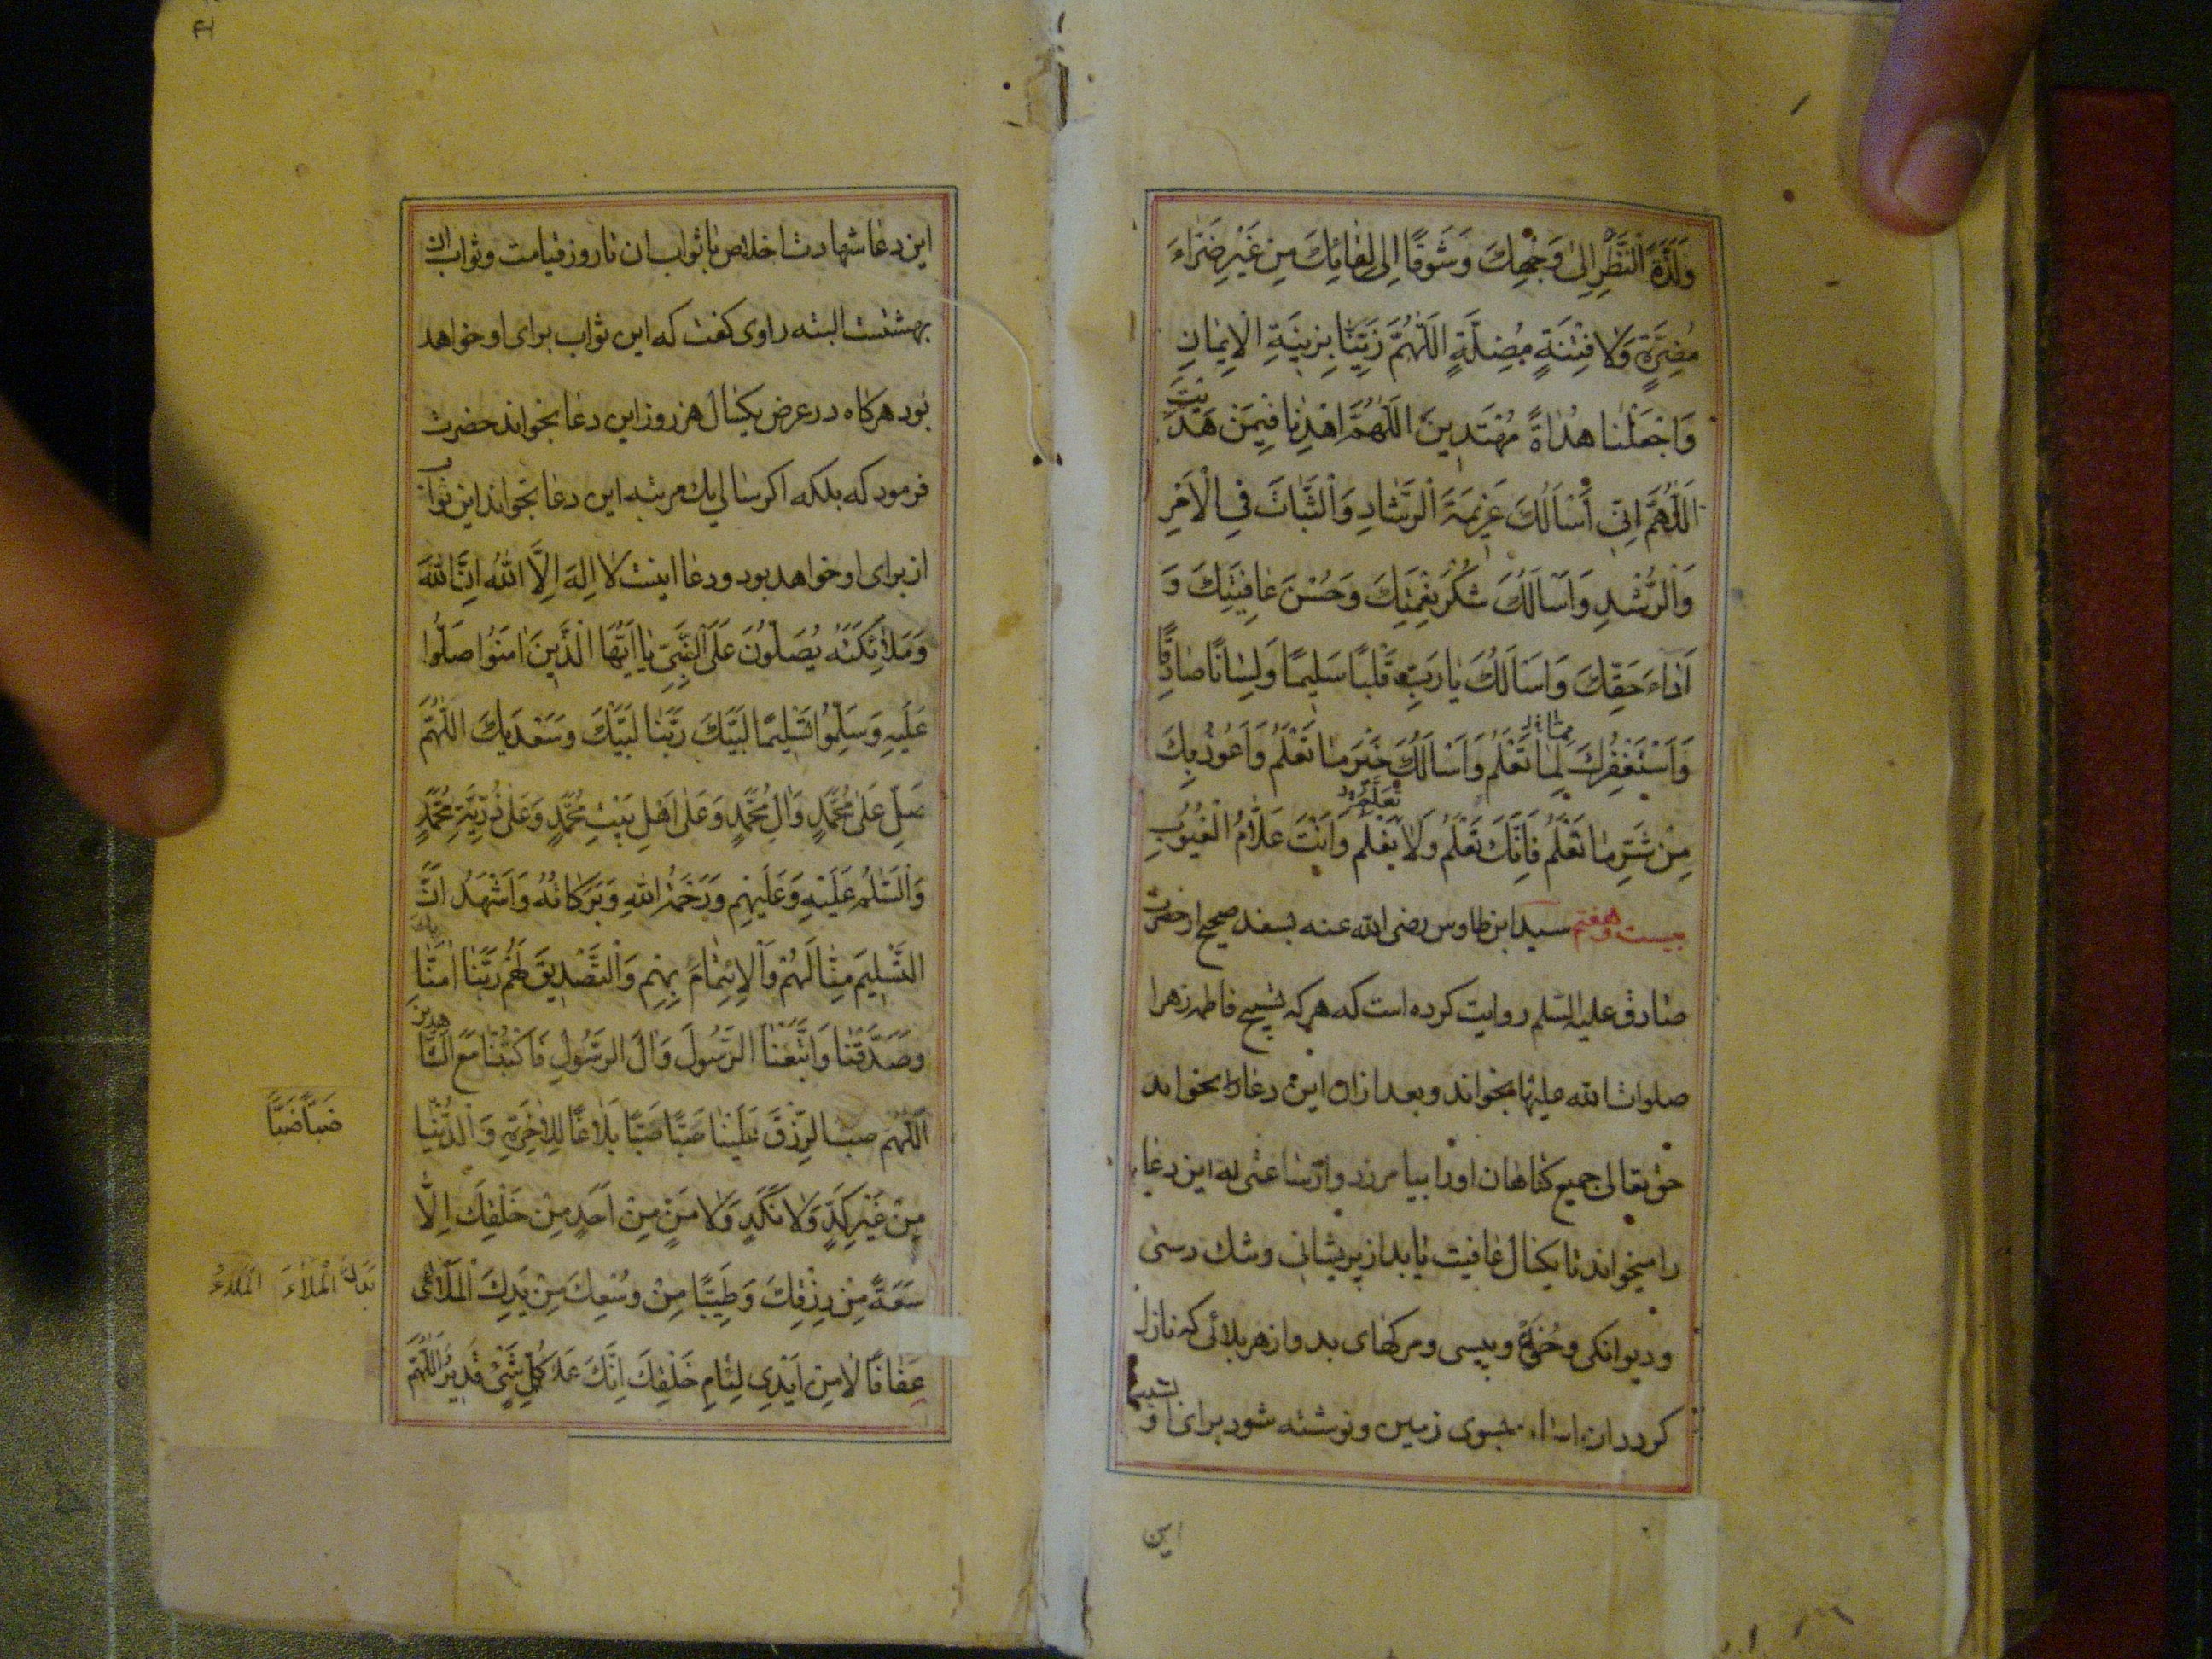 وَلَذَّةَ الْنَّظَرِ اِلىٰ وَجْهِكَ وَشَوقًا اِلى لِقائِكَ مِن غَيْرِ ضَرّاءَ
مُضِرَّةٍ وَلا فِتْنَةٍ مُضِلَّةٍ اَللّٰهُمَّ زَيِّنّا بِزينَةِ الْاِيمانِ
وَاجْعَلْنا هُداةً مُهْتَدينَ اَللّٰهُمَّ اهْدِنا فيمَنْ هَدَيْتَ
اَللّٰهُمَّ اِنّي أَسْاَلُكَ عَزيمَةَ الْرَّشادِ وَالْثَّباتَ فِي الْاَمْرِ
وَالْرُّشْدِ وَاَسْاَلُكَ شُكْرَ نِعْمَتِكَ وَحُسْنَ عافِيَتِكَ وَ
اَداءَ حَقِّكَ وَاَسْاَلُكَ يا رَبِّ قَلْبًا سَليمًا وَلِسانًا صادِقًا
وَاَسْتَغْفِرُكَ لِما تَعْلَمُ وَاَسْاَلُكَ خَيْرَ ما تَعْلَمُ وَاَعُوذُ بِكَ
مِنْ شَرِّ ما تَعْلَمُ فَاِنَّكَ تَعْلَمُ وَلا نَعْلَمُ وَاَنْتَ عَلّامُ الْغُيُوبِ
بيست وهفتم سيد ابن طاوس رضى الله عنه بسند صحيح از حضرت
صادق عليه السّلم روايت كرده است كه هركه تسبيح فاطمه زهرا
صلوات الله عليها بخواند و بعد از ان اين دعا را بخواند
حق تعالى جميع كناهان او را بيامرزد و از ساعتى كه اين دعا
را ميخواند تا يكسال عافيت يابد از پريشانى و
وديوانكى و وپيسى ومركهاى بد واز هر بلائى كه نازل
كردد از بسوى زمين ونوشته شود براى او بسبب
اين
اين دعا شهادت اخلاص با ثواب ان تا روز قيامت وثواب ان
بهشتست البته راوى كفت كه اين ثواب براى او خواهد
بود هركاه در عرض يكسال هر روز اين دعا بخواند حضرت
فرمود كه بلكه اكر سالي يك مرتبه اين دعا بخواند اين ثواب
از براى او خواهد بود ودعا اينست لا اِلهَ اِلَّا اللهُ اِنَّ اللهَ
وَمَلائِكَتَهُ يُصَلُّونَ عَلَى النَّبِيِّ يا اَيُّهَا الَّذينَ امَنُوا صَلُّوا
عَلَيهِ وَسَلِّمُوا تَسْليمًا لَبَّيْكَ رَبَّنا لَبَّيْكَ وَسَعْدَيْكَ اللّٰهُمَّ
صَلِّ عَلىٰ مُحَمَّدٍ وَالِ مُحَمَّدٍ وَعَلىٰ اَهْلِ بَيْتِ مُحَمَّدٍ وَعَلىٰ ذُرِّيَّةِ مُحَمَّدٍ
وَالْسَّلٰمُ عَلَيْهِ وَعَلَيْهِم وَرَحْمَةُ اللهِ وَبَرَكاتُهُ وَاَشْهَدُ اَنَّ
التَّسْليمَ مِنّا لَهُمْ وَالْاِئتِمامَ بِهِم وَالْتَّصْديقَ لَهُم رَبَّنا امَنّا
وَصَدَّقْنا وَاتَّبَعْنا الرَّسُولَ وَالَ الرَّسُولِ فَاكْتُبْنا مَعَ الشّاهدين
اَللّٰهُم صب الرِّزْقَ عَلَيْنا صَبًّا صَبًّا بَلاغًا لِلاٰخِرَةِ وَالْدُّنْيا
صَبًّا صَبًّا
مِنْ غَيْرِ كَدٍّ وَلا نَكَدٍ وَلا مَنٍّ مِنْ اَحَدٍ مِنْ خَلْقِكَ اِلّا
سَعَةً مِنْ رِزْقِكَ وَطَيِّبًا مِنْ وُسْعِكَ مِنْ يَدِكَ الْمَلْاىٰ
الْمَلاءَ
عَفافًا لا مِنْ اَيْدي لِئامِ خَلْقِكَ اِنَّكَ عَلىٰ كُلِّ شَيْءٍ قَديرٌ اَللّٰهُمَّ